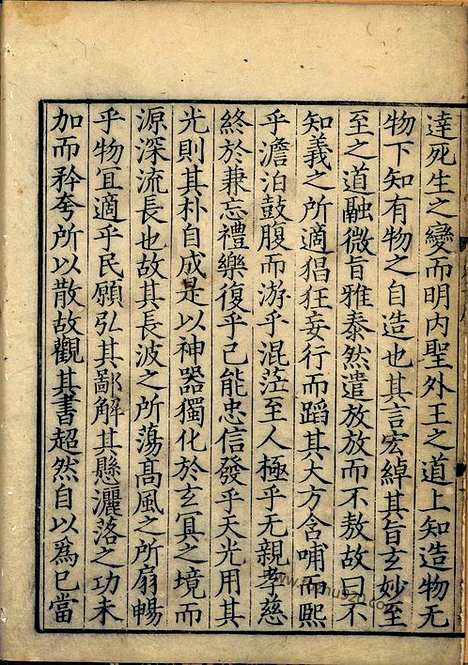 達死生之變而明内聖外王之道上知造物无
物下知有物之自造也其言宏綽其旨玄妙至
至之道融微旨雅泰然遣放放而不敖故曰不
知義之所適猖狂妄行而蹈其大方含哺而熙
乎澹泊鼓腹而游乎混茫至人極乎无親孝慈
終於兼忘禮樂復乎已能忠信發乎天光用其
光則其朴自成是以神器獨化於玄冥之境而
源深流長也故其長波之所蕩髙風之所扇暢
乎物宜適乎民願弘其鄙解其懸灑落之功未
加而矜夸所以散故觀其書超然自以爲已當